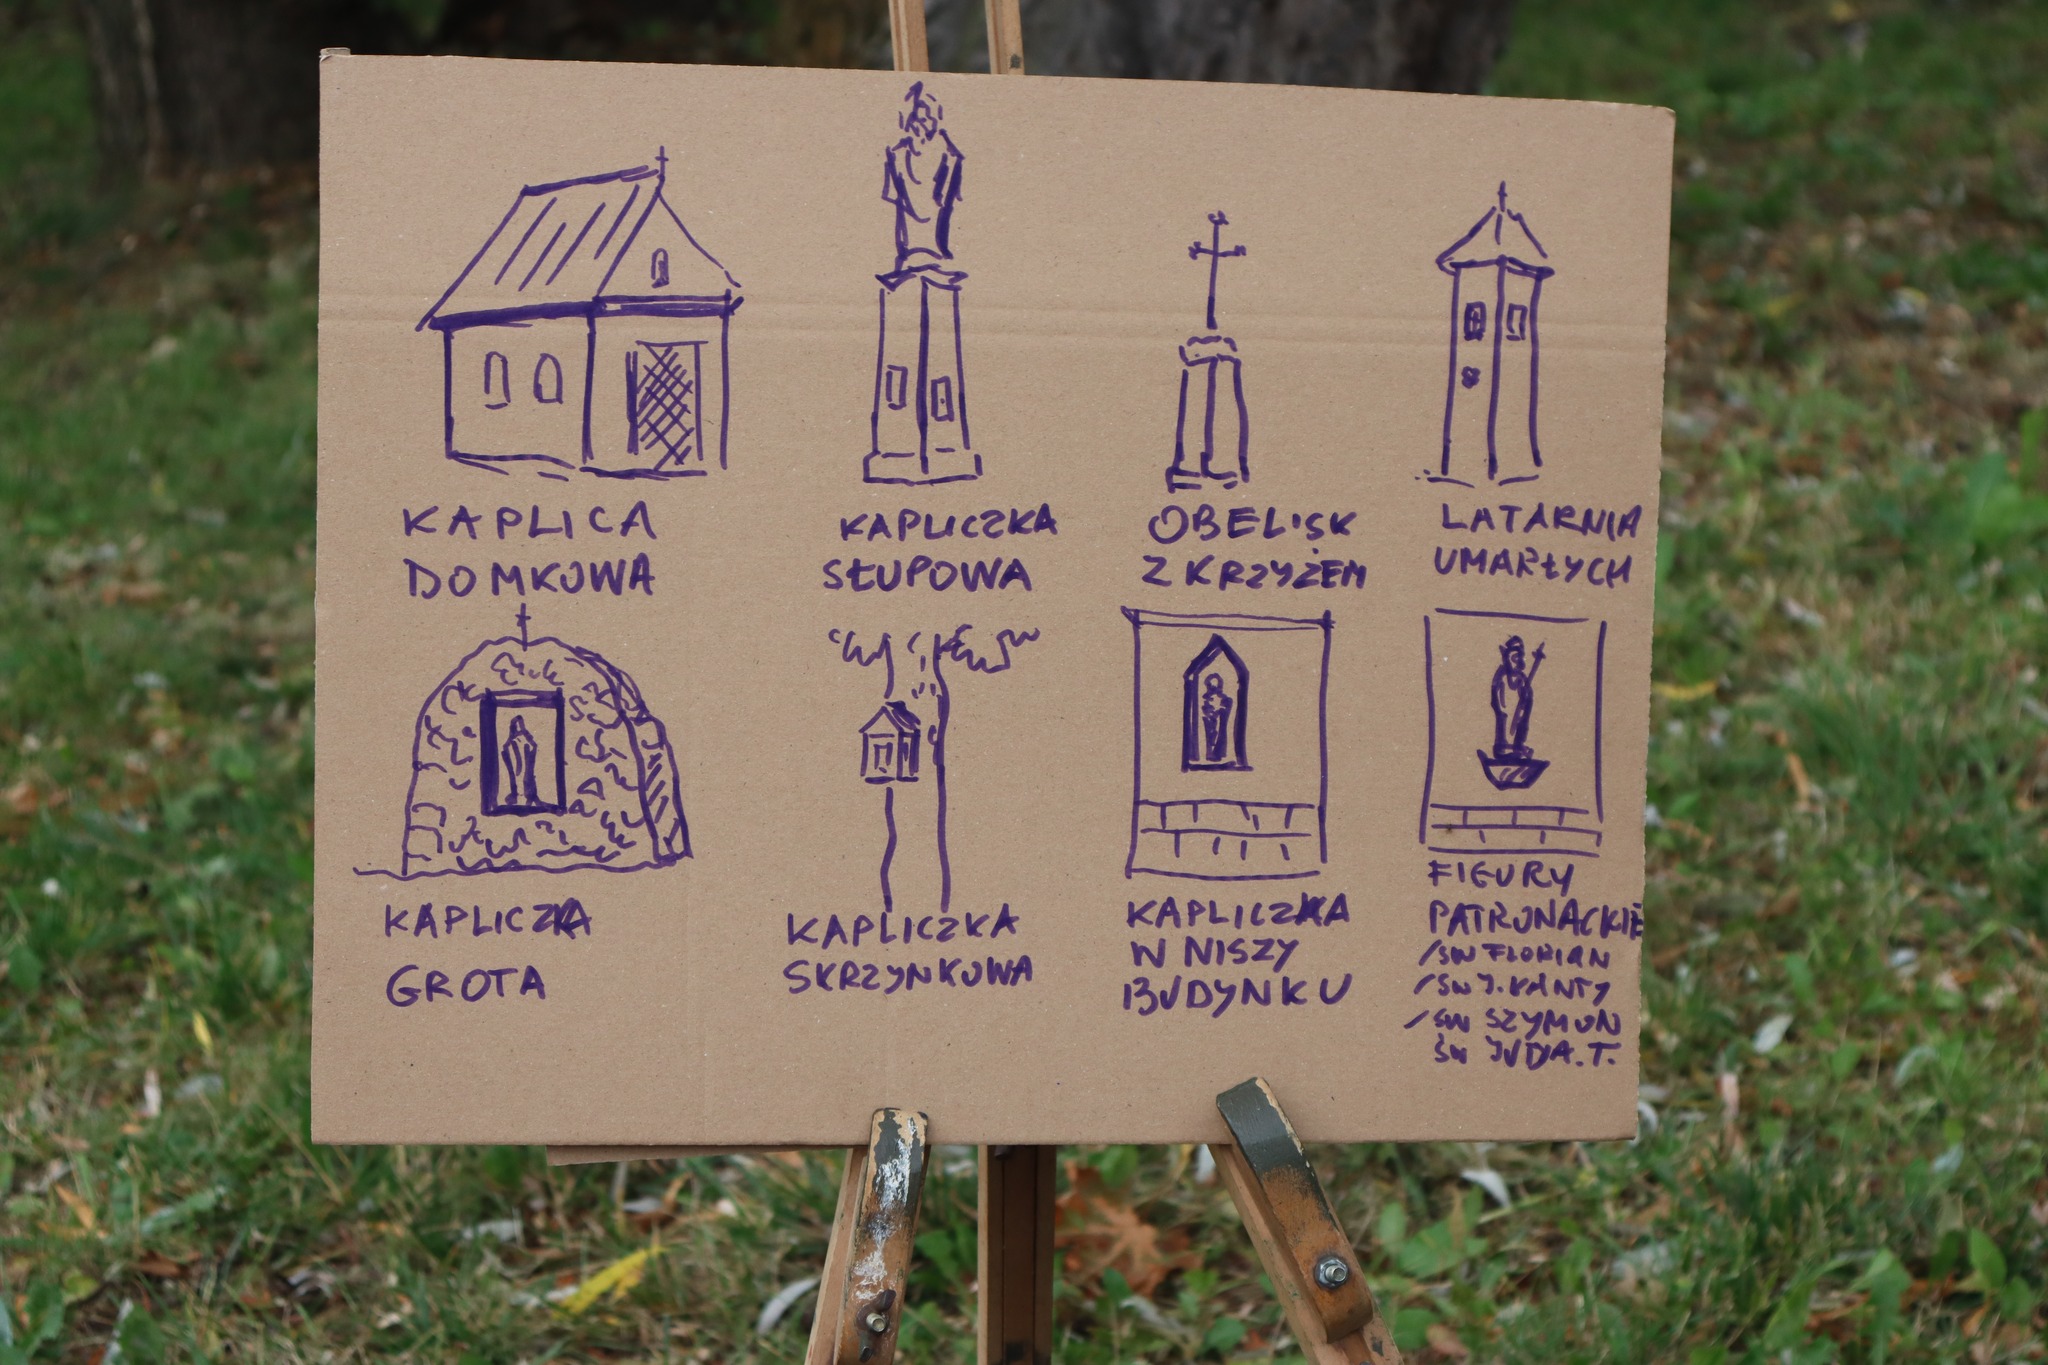 KAPLICA
DOMKOWA
KAPLICZKA
SŁUPOWA
OBELISK
Z KRZYŻEM
LATARNIA
UMARŁYCH
KAPLICZKA
GROTA
KAPLICZKA
SKRZYNKOWA
KAPLICZKA
W NISZY
BUDYNKU
FIGURY
PATRONACKIE
/ŚW FLORIAN
/ŚW J. KANTY
/ŚW SZYMON
ŚW JUDA.T.